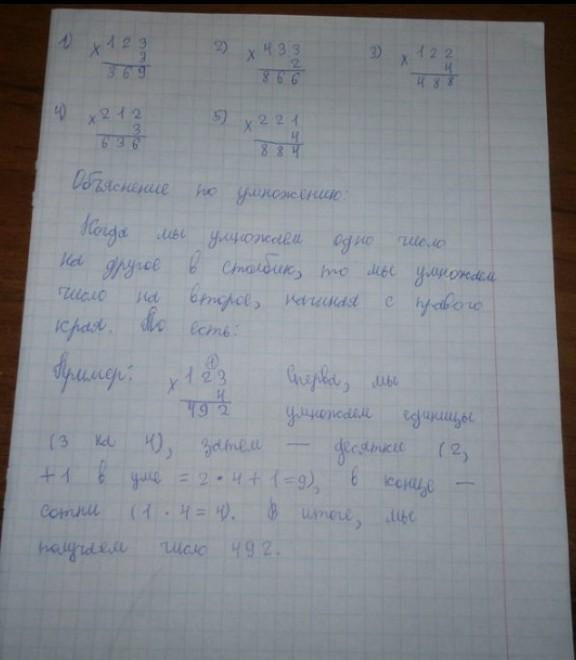 1) x 1 2 3 2) x 4 3 3 3) x 1 2 2
3 2 4
3 6 9 8 6 6 4 8 8
4) x 2 1 2 5) x 2 2 1
3 4
6 3 6 8 8 4
Объяснение по умножению:
Когда мы умножаем одно число
на другое в столбик, то мы умножаем
число на второе, начиная с правого
края. То есть:
Пример: x 1 2 3 Сперва, мы
(1)
4
4 9 2 умножаем единицы
(3 на 4), затем — десятки (2,
+1 в уме = 2 · 4 + 1 = 9), в конце —
сотни (1 · 4 = 4). В итоге, мы
получаем число 492.